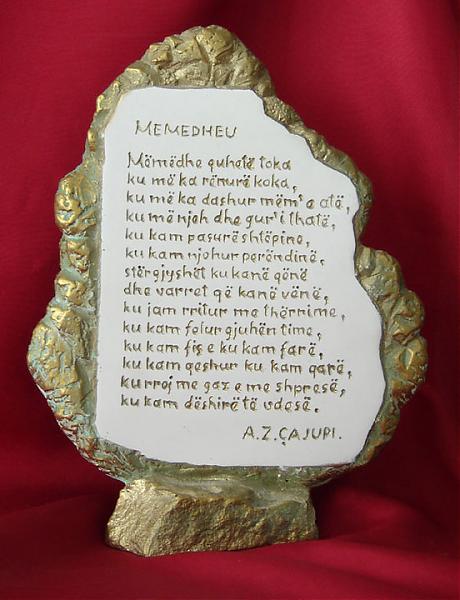 MEMEDHEU
Mëmëdhe quhetë toka
ku më ka rënurë koka,
ku më ka dashur mëm' e atë,
ku më njeh dhe gur' i thatë,
ku kam pasurë shtëpinë,
ku kam njohur perëndinë,
stërgjyshët ku kanë qënë
dhe varret që kanë vënë,
ku jam rritur me thërrime,
ku kam folur gjuhën time,
ku kam fis e ku kam farë,
ku kam qeshur ku kam qarë,
ku rroj me gaz e me shpresë,
ku kam dëshirë të vdesë.
A.Z.ÇAJUPI.